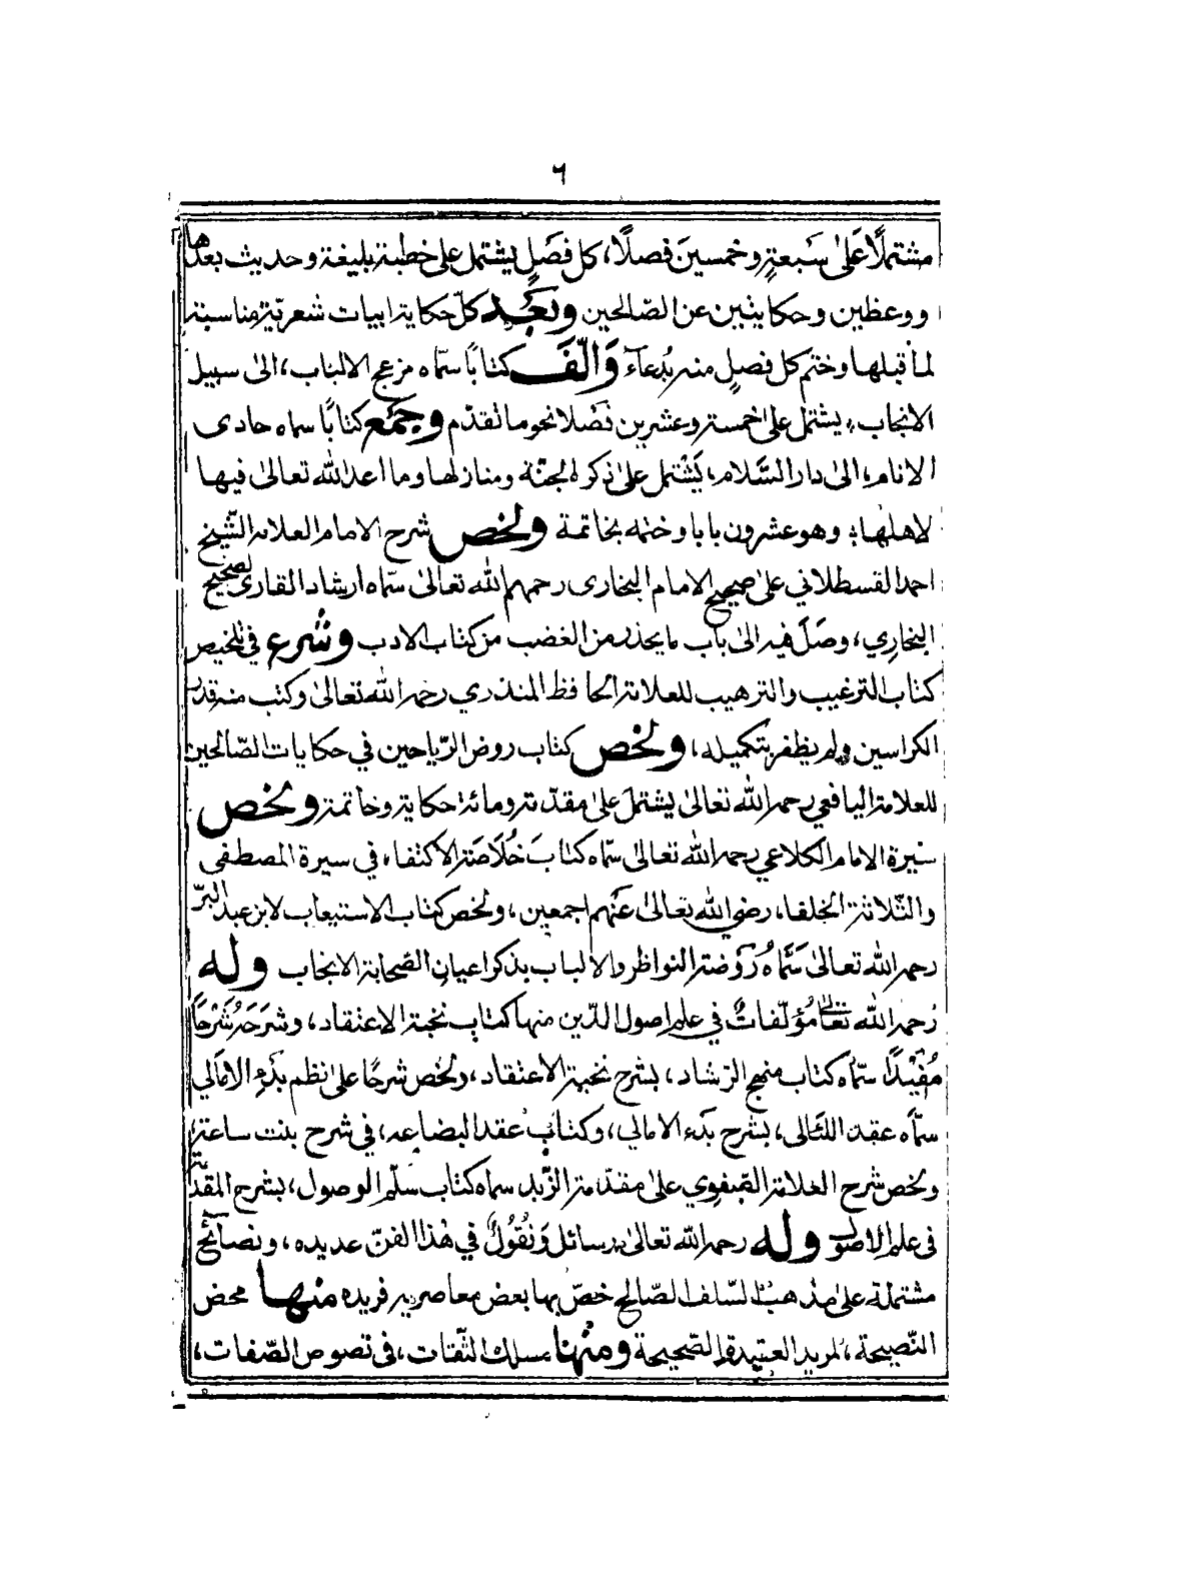 ٦
مشتملًا عَلىٰ سَبعةٍ وخمسينَ فصلًا، كل فصَلٍ يشتمل على خطبة بليغة وحديث بعدها
ووعظين وحكايتين عن الصّالحين وبَعْد كلّ حكاية ابيات شعريّة مناسبة
لما قبلها وختم كل فصلٍ منه بدُعآءٍ وَالّفَ كتابًا سمّاه مزعج الالباب، الىٰ سبيل
الانجاب، يشتمل علىٰ خمسة وعشرين فصلا نحو ما تقدّم وجَمَع كتابًا سماه حادى
الانام، الىٰ دار السَّلام، يَشْتمل علىٰ ذكر الجنّة ومنازلها وما اعد الله تعالىٰ فيها
لاهلها؛ وهو عشرون بابا وختمه بخاتمة ولخص شرح الامام العلامة الشّيخ
احمد القسطلاني علىٰ صحيح الامام البخارى رحمهم الله تعالىٰ سمّاه ارشاد القارى لصحيح
البخاري، وصَلَ فيه الىٰ باب ما يحذر من الغضب من كتاب الادب وشرع في تلخيص
كتاب الترغيب والترهيب للعلامة الحافظ المنذري رحمه الله تعالىٰ وكتب منه قدر
الكراسين ولم يظفر بتكميله، ولخص كتاب روض الرّياحين في حكايات الصّالحين
للعلامة اليافعي رحمه الله تعالىٰ يشتمل علىٰ مقدّمة ومائة حكاية وخاتمة ولخص
سيرة الامام الكلاعي رحمه الله تعالىٰ سمّاه كتابَ خُلَاصَة الاكتفاء في سيرة المصطفى
والثّلاثة الخلفاء رضي الله تعالىٰ عنهم اجمعين، ولخص كتاب الاستيعاب لابن عبد البرّ
رحمه الله تعالىٰ سَمَّاهُ رَوضة النواظر والالباب بذكر اعيان الصّحابة الانجاب وله
رحمه الله تعَالىٰ مُؤلّفاتٌ في علم اصول الدّين منها كتاب نخبة الاعتقاد، وشرَحَهُ شَرْحًا
مُفِيْدًا سمّاه كتاب منهج الرّشاد، بشرح نخبة الاعتقاد، ولخّص شرحًا علىٰ نظم بَدْءِ الامالي
سمّاه عقد اللئالى، بشرح بَدْء الامالي، وكتاب عقد البضاعه، في شرح بنت ساعة،
ولخص شرح العلامة الصّفوي علىٰ مقدّمة الزّبد سماه كتاب سلّم الوصول، بشرح المقدّمة
فى علم الاصُول وله رحمه الله تعالىٰ رسائل وَنُقُولٌ في هٰذا الفنّ عديده، ونصآئح
مشتملة علىٰ مذهب السّلف الصّالح خصّ بها بعض معاصريه فريده منها محض
النّصيحة، لمريد العقيدة الصّحيحة ومنها مسلك الثّقات، فى نصوص الصّفات،